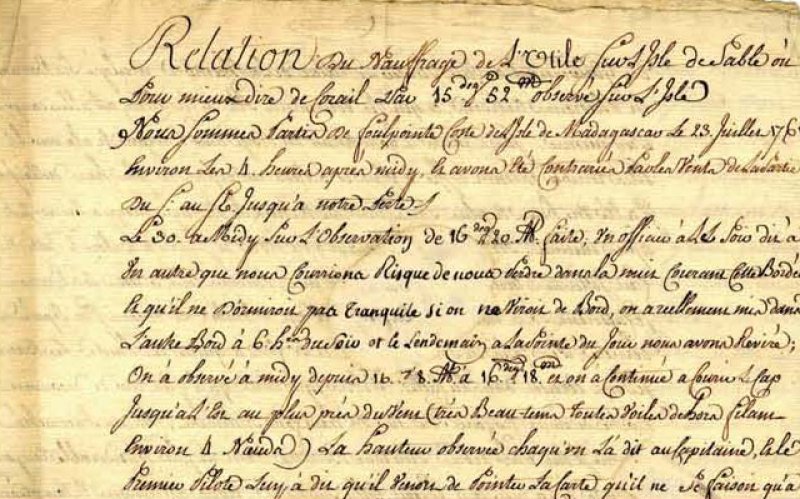 Relation Du Nauffrage de L'Utile sur L'Isle de Sable ou
Pour mieux dire de Corail Par 15 deg 52 m observé sur L'Isle
Nous Sommes Partis De Foulpointe Coste de L'Isle de Madagascar Le 23. Juillet 176
Environ Les 4. heures après midy, et avons été Contrariés Par les Vents de La Partie
Du S. au SE Jusqu'à notre Perte
Le 30. a Midy Sur L'Observation de 16 deg 20 M. faite, un officier à Le Soir dit à
un autre que nous Courrions Risque de nous Perdre dans la nuit Courant Cette Bordée
et qu'il ne Dormiroit pas Tranquile si on ne Viroit de Bord, on a reellement mis dans
L'autre Bord à 6. h. du Soir et le Lendemain a La Pointe du Jour nous avons Reviré;
On à observé à midy depuis 16. d 8. M. à 16 deg 18 m et on a Continué a Courir Le Cap
Jusqu'a L'Est au plus près du Vent (très Beau-tems toutes Voiles dehors filant
Environ 4 Nœuds) La hauteur observée chaqu'un La dit au Capitaine, et le
Premier Pilote Luy à dit qu'il Venoit de Pointer La Carte qu'il ne Se faisoit qu'à